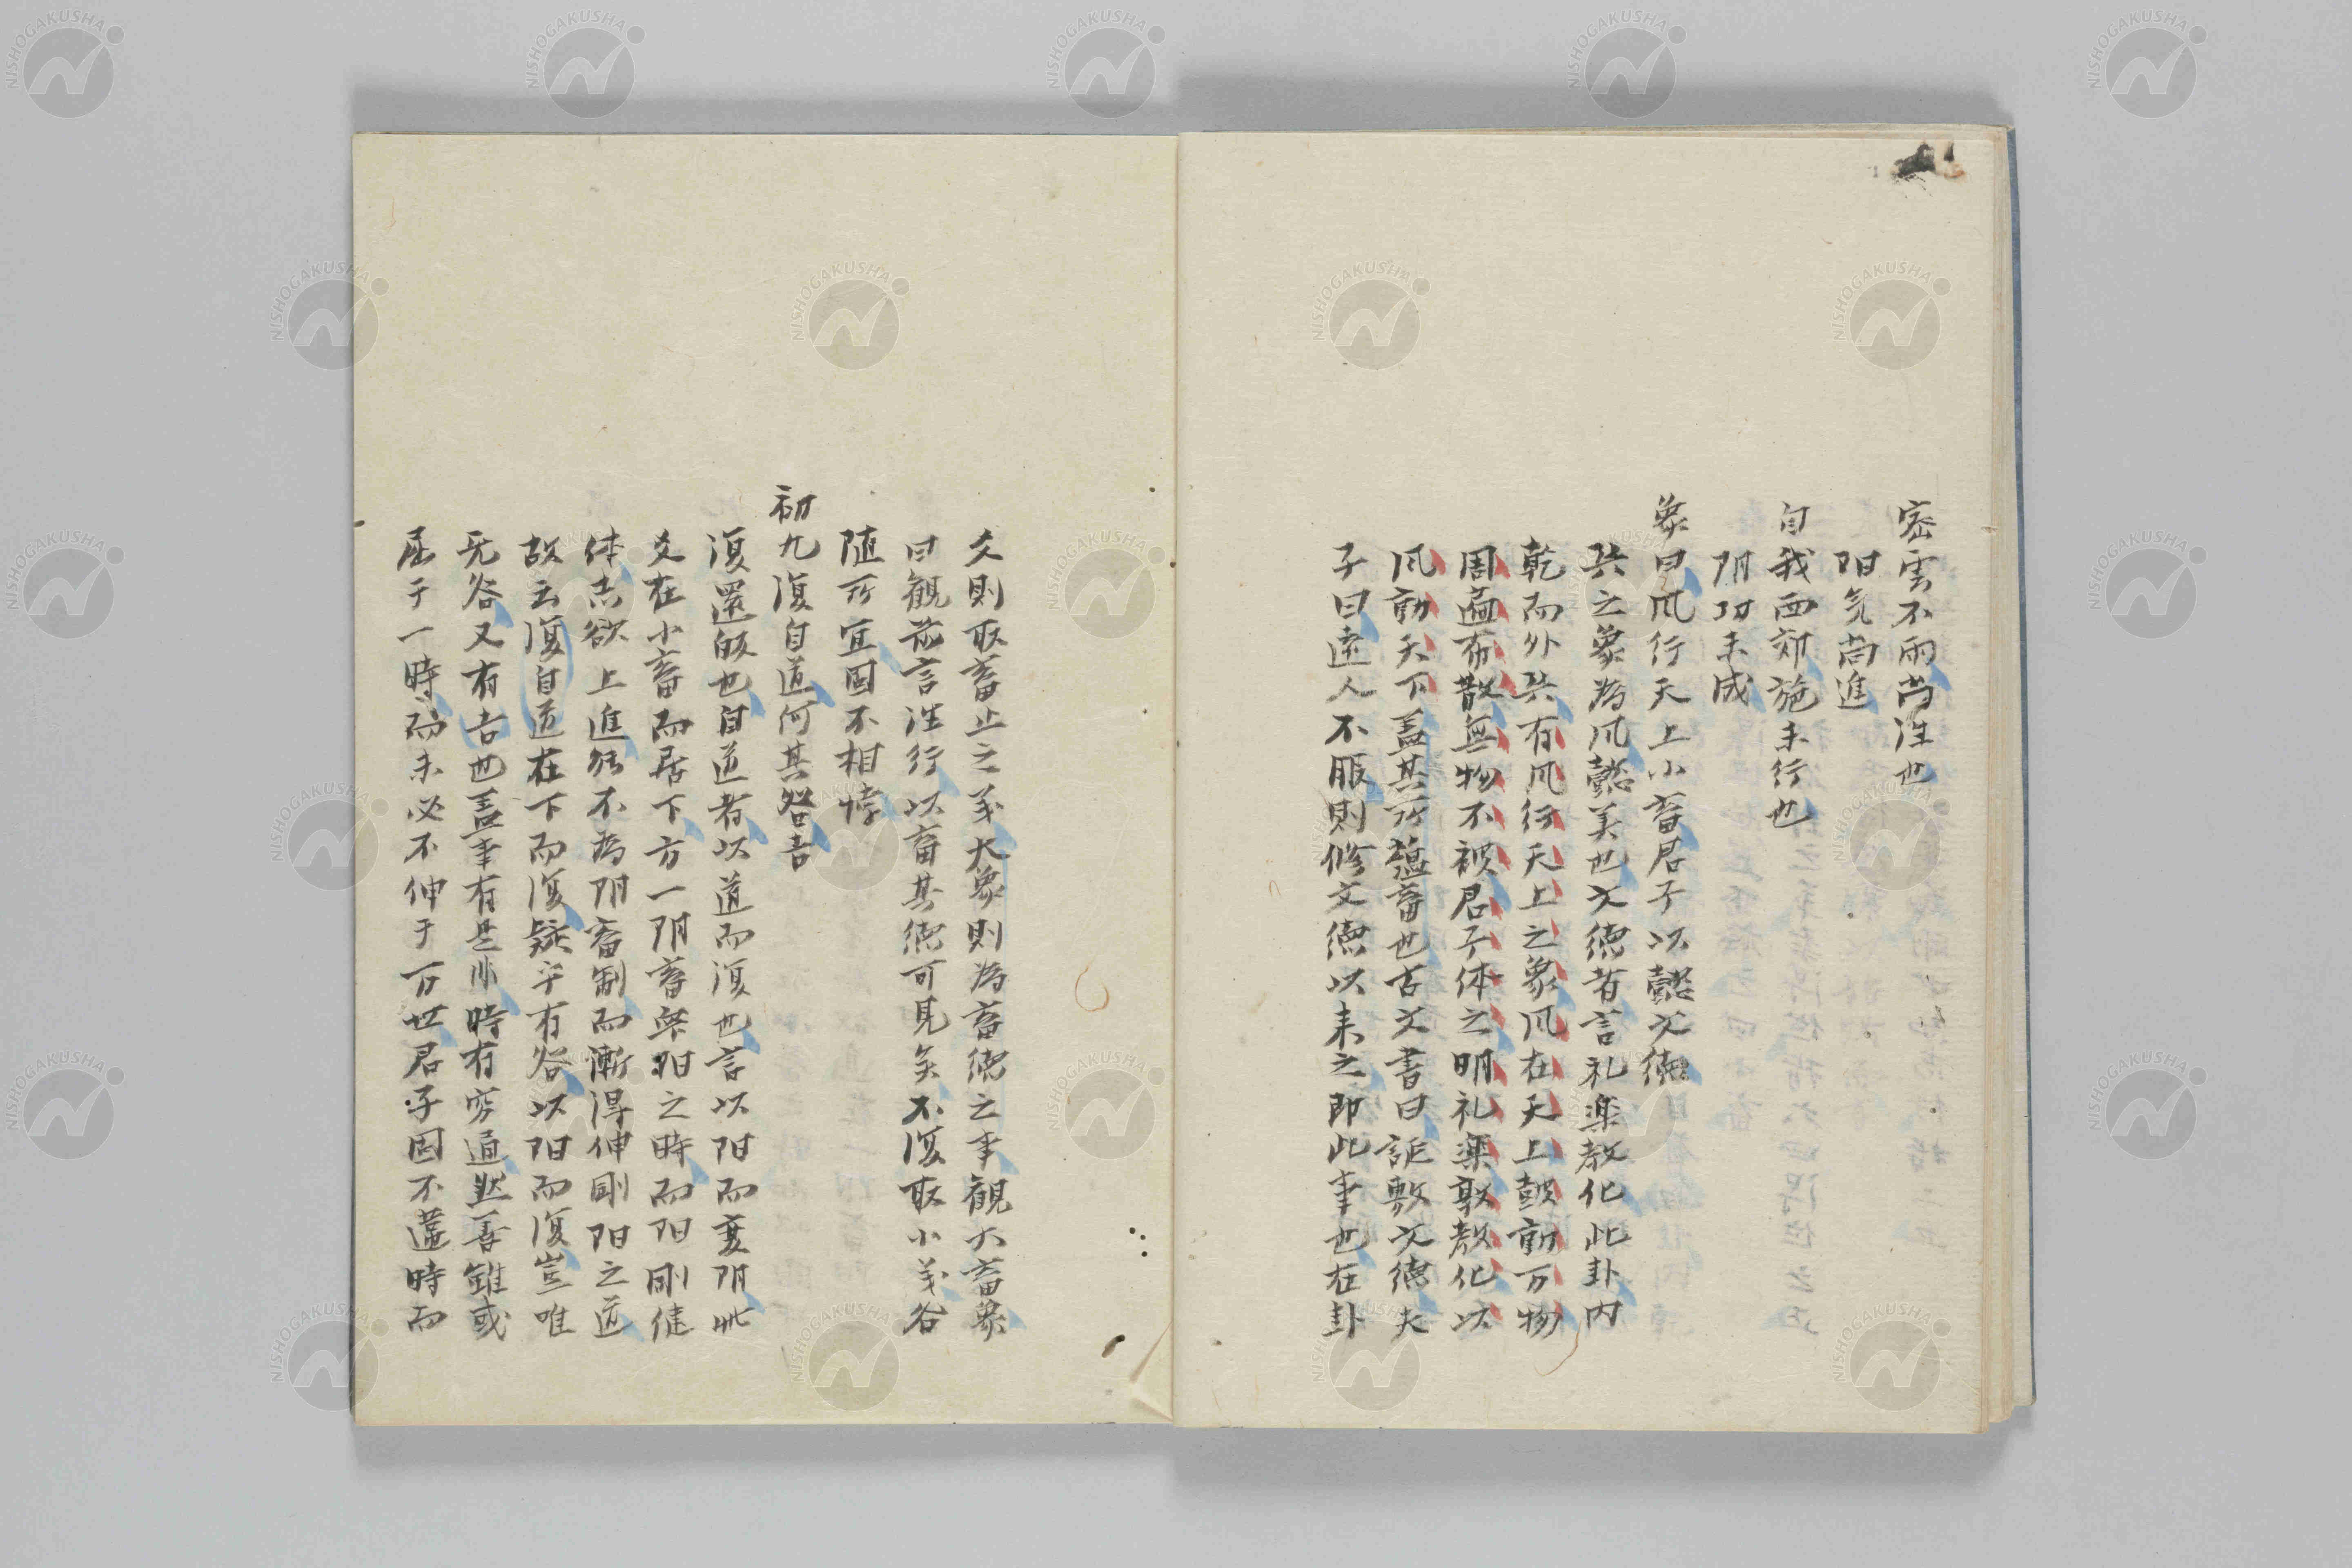 密雲不雨尚往也
阳気尚進
自我西郊施未行也
阴功未成
象曰風行天上小畜君子以懿文徳
巽之象為風懿美也文徳者言礼楽教化此卦内
乾而外巽有風行天上之象風在天上鼓動万物
周遍布散無物不被君子体之明礼楽敦教化以
風動天下盖其所蕴畜也古文書曰誕敷文徳夫
子曰遠人不服則修文徳以来之即此事也在卦
爻則取畜止之義大象則為畜徳之事観大畜象
曰観前言往行以畜其徳可見矣不復取小義各
随所宜固不相悖
初九復自道何其咎吉
復還皈也自道者以道而復也言以阳而変阴此
爻在小畜而居下方一阴畜衆阳之時而阳剛健
体志欲上進能不為阴畜制而漸得伸剛阳之道
故云復自道在下而復疑乎有咎以阳而復豈唯
无咎又有吉也盖事有是非時有窮通然善雖或
屈于一時而未必不伸于万世君子固不違時而
NISHOGAKUSHA